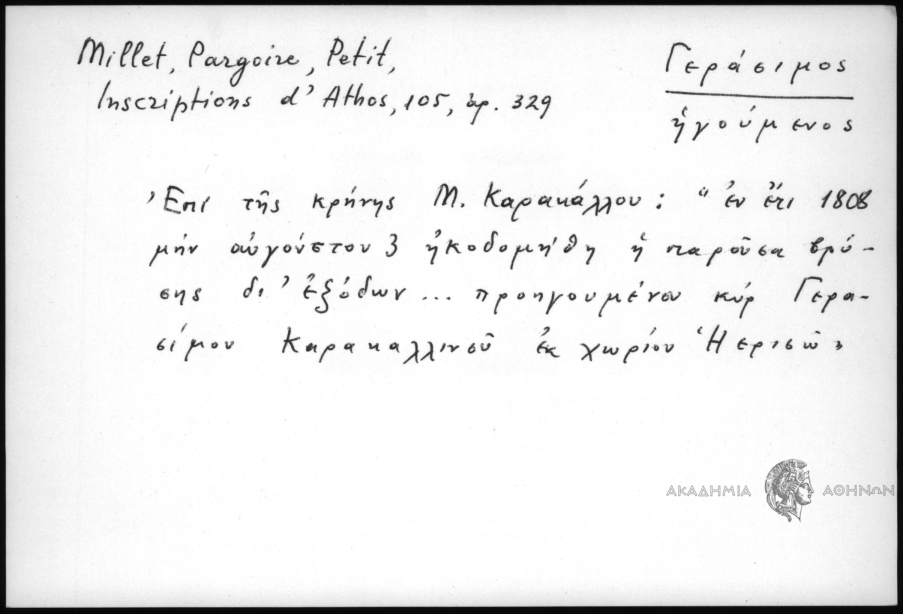 Millet, Pargoire, Petit,
Inscriptions d'Athos, 105, ἀρ. 329
Γεράσιμος
ἡγούμενος
Ἐπί τῆς κρήνης Μ. Καρακάλλου : "ἐν ἔτι 1808
μήν αὐγούστου 3 ἠκοδομήθη ἡ παροῦσα βρύ-
σης δι' ἐξόδων ... προηγουμένου κύρ Γερα-
σίμου Καρακαλλινοῦ ἐκ χωρίου Ἡερισῶ"
ΑΚΑΔΗΜΙΑ ΑΘΗΝΩΝ